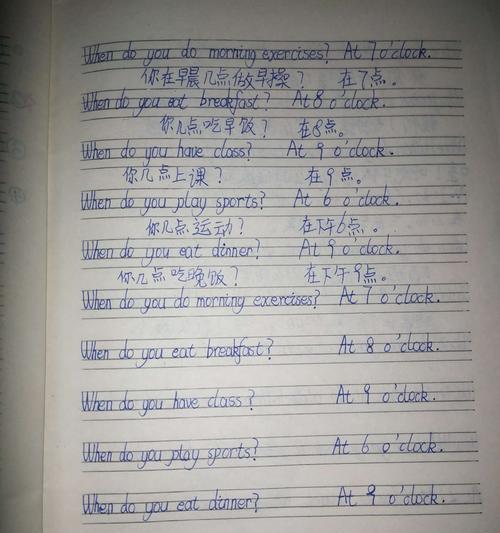 When do you do morning exercises? At 7 o'clock.
你在早晨几点做早操？ 在7点。
When do you eat breakfast? At 8 o'clock.
你几点吃早饭？ 在8点。
When do you have class? At 9 o'clock.
你几点上课？ 在9点。
When do you play sports? At 6 o'clock.
你几点运动？ 在下午6点。
When do you eat dinner? At 9 o'clock.
你几点吃晚饭？ 在下午9点。
When do you do morning exercises? At 7 o'clock.
When do you eat breakfast? At 8 o'clock.
When do you have class? At 9 o'clock.
When do you play sports? At 6 o'clock.
When do you eat dinner? At 9 o'clock.